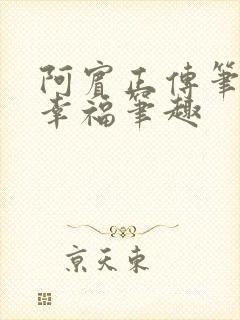 阿賓正傳筆
幸福筆趣
京天東